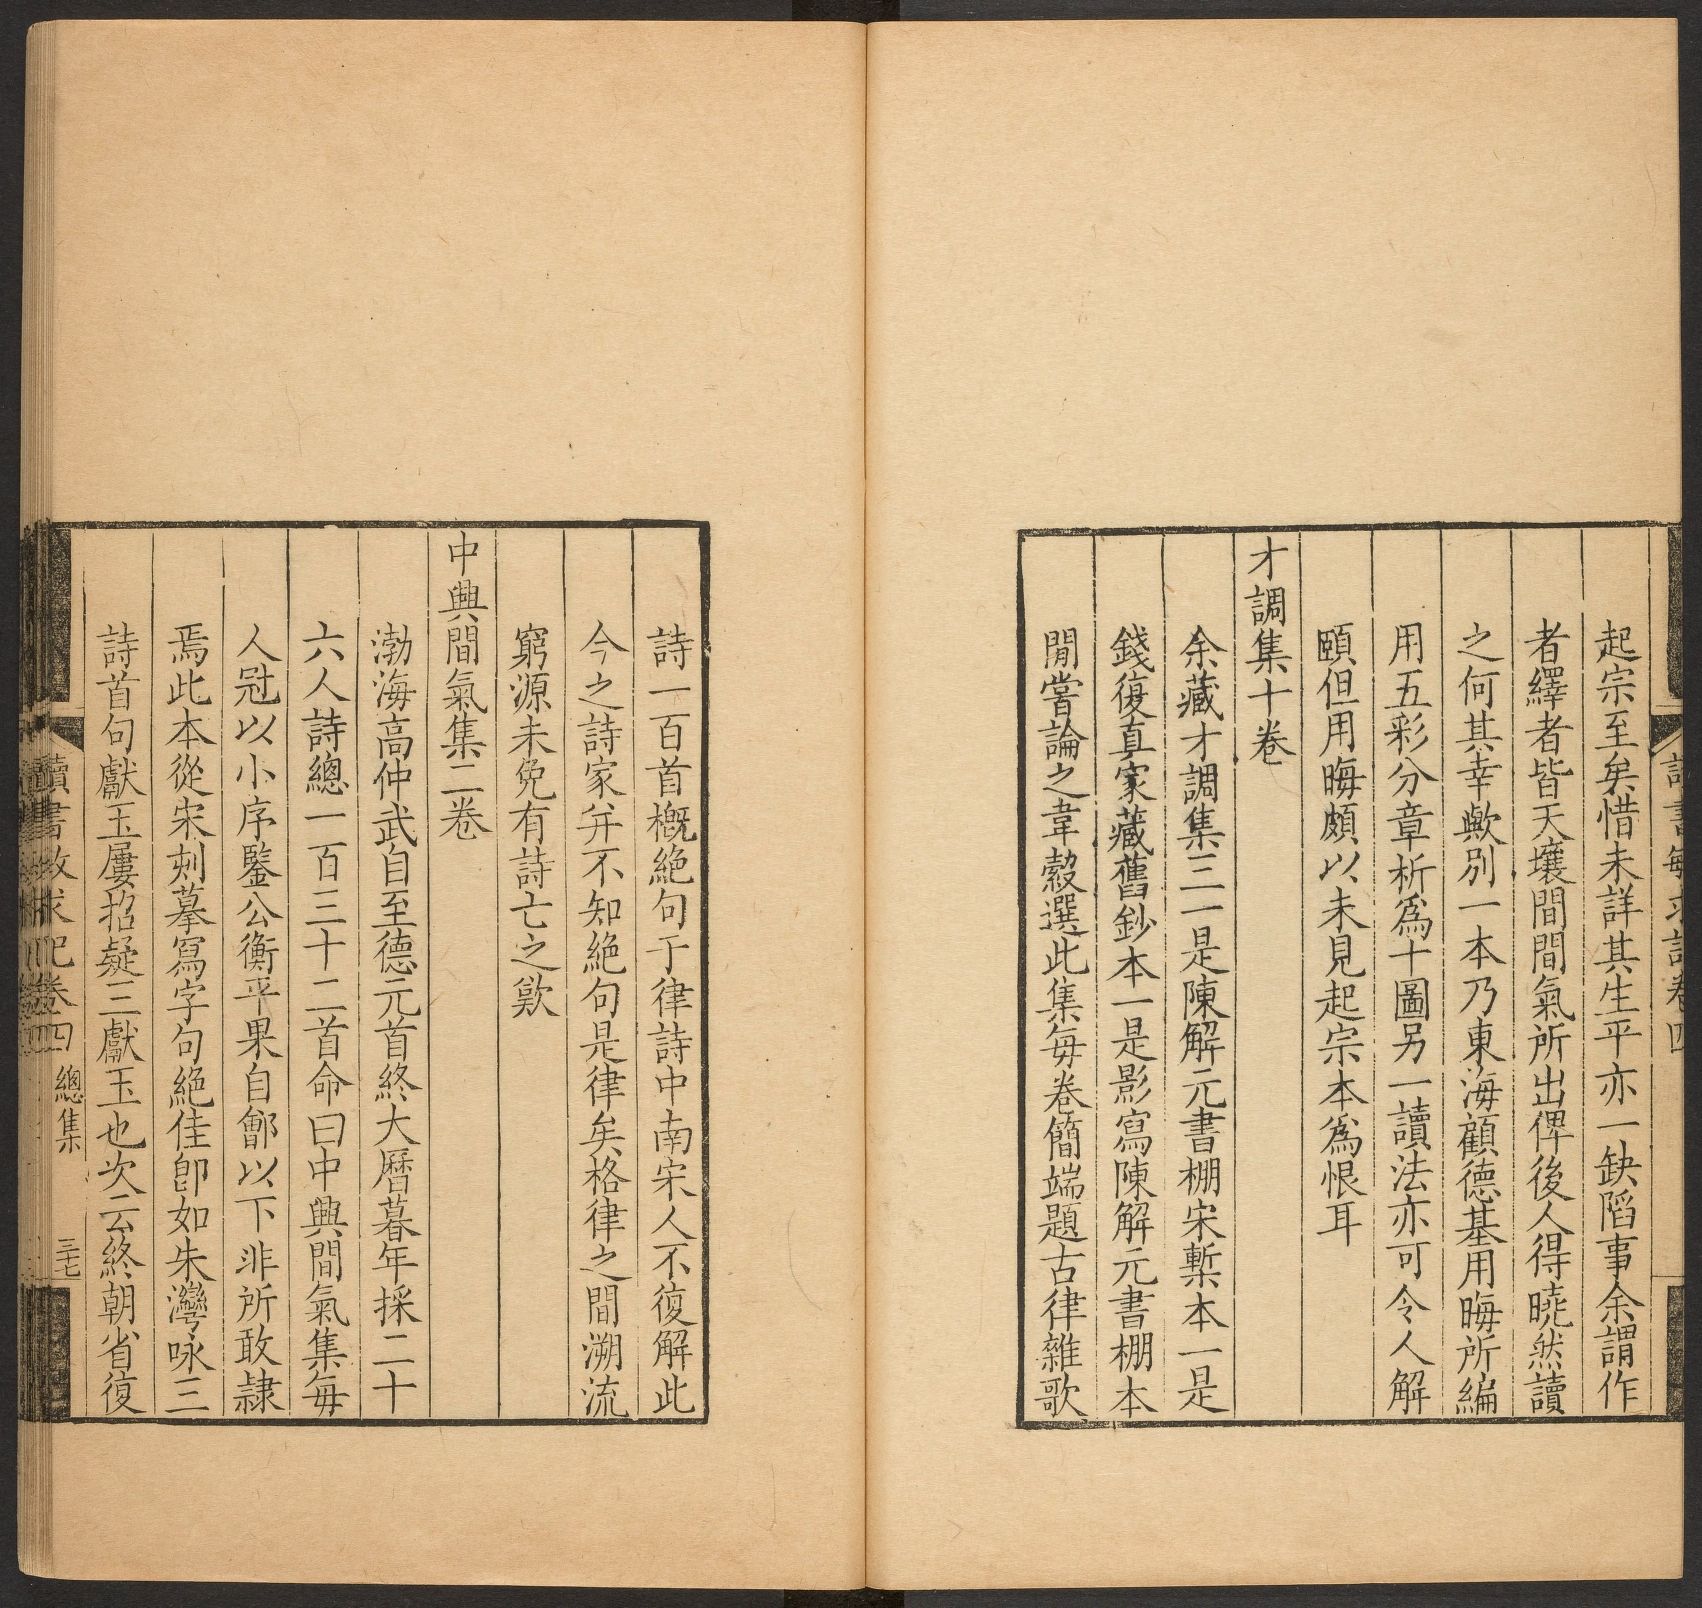 起宗至矣惜未詳其生平亦一缺䧟事余謂作
者繹者皆天壤間間氣所出俾後人得曉然讀
之何其幸歟别一本乃東海顧德基用晦所編
用五彩分章析爲十圖另一讀法亦可令人解
頤但用晦頗以未見起宗本爲恨耳
才調集十卷
余藏才調集三一是陳解元書棚宋槧本一是
錢復真家藏舊鈔本一是影寫陳解元書棚本
閒嘗論之韋縠選此集每卷簡端題古律雜歌
詩一百首概絕句于律詩中南宋人不復解此
今之詩家并不知絕句是律矣格律之間溯流
窮源未免有詩亡之歎
中興間氣集二卷
渤海高仲武自至德元首終大曆暮年採二十
六人詩總一百三十二首命曰中興間氣集每
人冠以小序鑒公衡平果自鄶以下非所敢隸
焉此本從宋刻摹寫字句絕佳卽如朱灣咏三
詩首句獻玉屢招疑三獻玉也次云終朝省復
讀書敏求記卷四 總集 三七